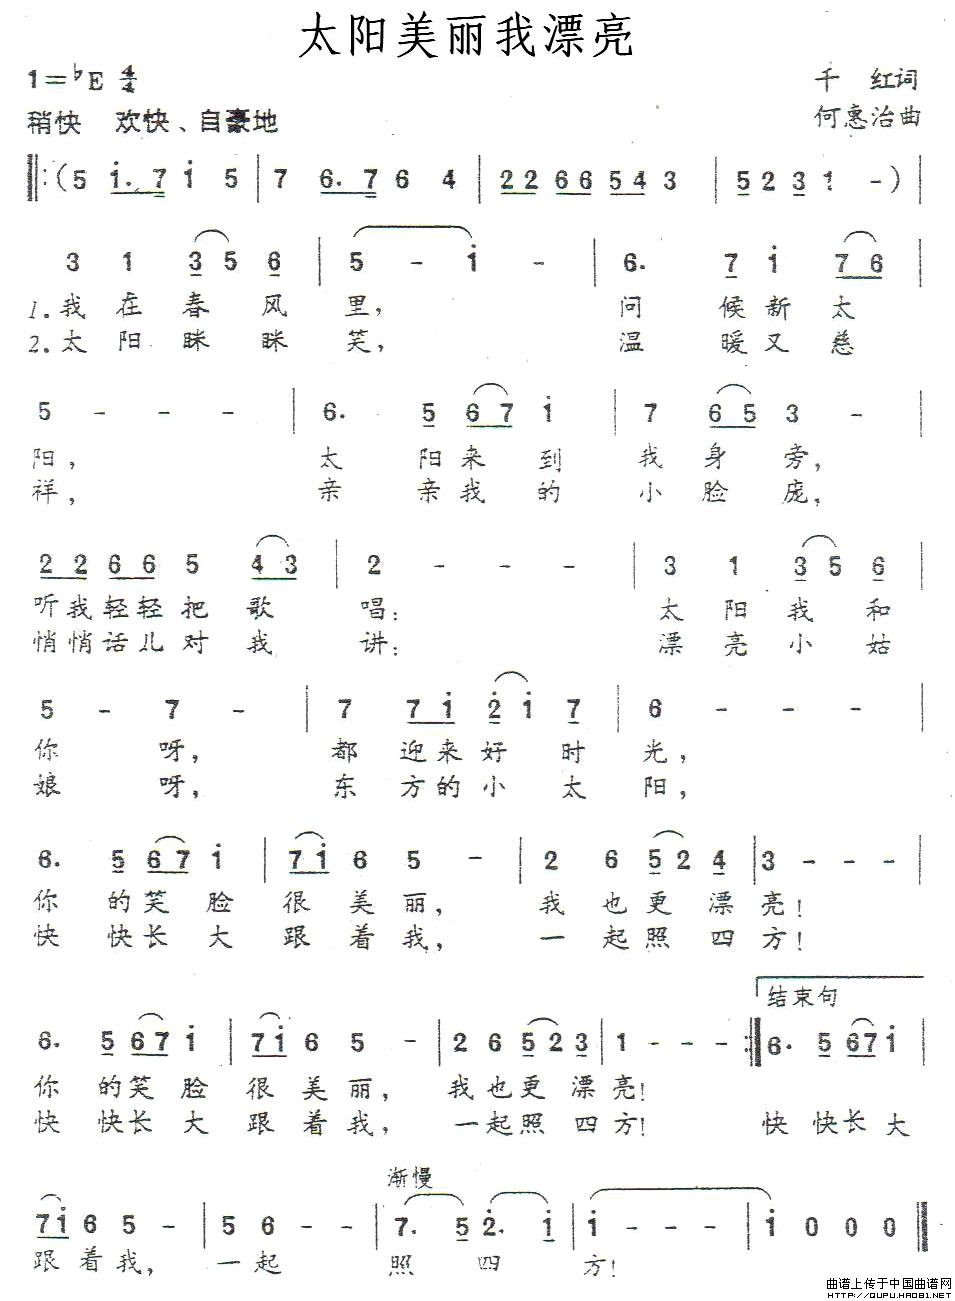 太阳美丽我漂亮
1=♭E 4/4
千 红词
稍快 欢快、自豪地
何惠治曲
‖:(5 1̇. 7 1̇ 5 | 7 6. 7 6 4 | 2 2 6 6 5 4 3 | 5 2 3 1 -) |
3 1 3 5 6 | 5 - 1̇ - | 6. 7 1̇ 7 6 |
1.我在春风里，问候新太
2.太阳眯眯笑，温暖又慈
5 - - - | 6. 5 6 7 1̇ | 7 6 5 3 - |
阳，太阳来到我身旁，
祥，亲亲我的小脸庞，
2 2 6 6 5 4 3 | 2 - - - | 3 1 3 5 6 |
听我轻轻把歌唱：太阳我和
悄悄话儿对我讲：漂亮小姑
5 - 7 - | 7 7 1̇ 2̇ 1̇ 7 | 6 - - - |
你呀，都迎来好时光，
娘呀，东方的小太阳，
6. 5 6 7 1̇ | 7 1̇ 6 5 - | 2 6 5 2 4 | 3 - - - |
你的笑脸很美丽，我也更漂亮！
快快长大跟着我，一起照四方！
结束句
6. 5 6 7 1̇ | 7 1̇ 6 5 - | 2 6 5 2 3 | 1 - - - :‖ 6. 5 6 7 1̇ |
你的笑脸很美丽，我也更漂亮！
快快长大跟着我，一起照四方！快快长大
渐慢
7 1̇ 6 5 - | 5 6 - - | 7. 5 2̇. 1̇ | 1̇ - - - | 1̇ 0 0 0 ‖
跟着我，一起照四方！
曲谱上传于中国曲谱网
HTTP://QUPU.HAO81.NET